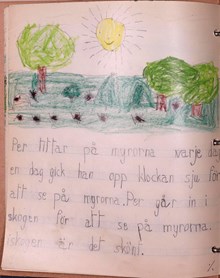 Per tittar på myrorna varje dag
en dag gick han opp klockan sju för
att se på myrorna. Per går in i
skogen för att se på myrorna.
iskogen är det skönt.